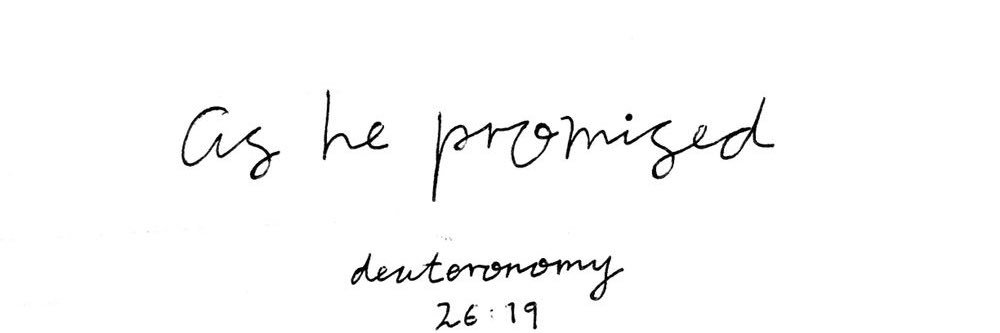 as he promised
deutoronomy
26:19